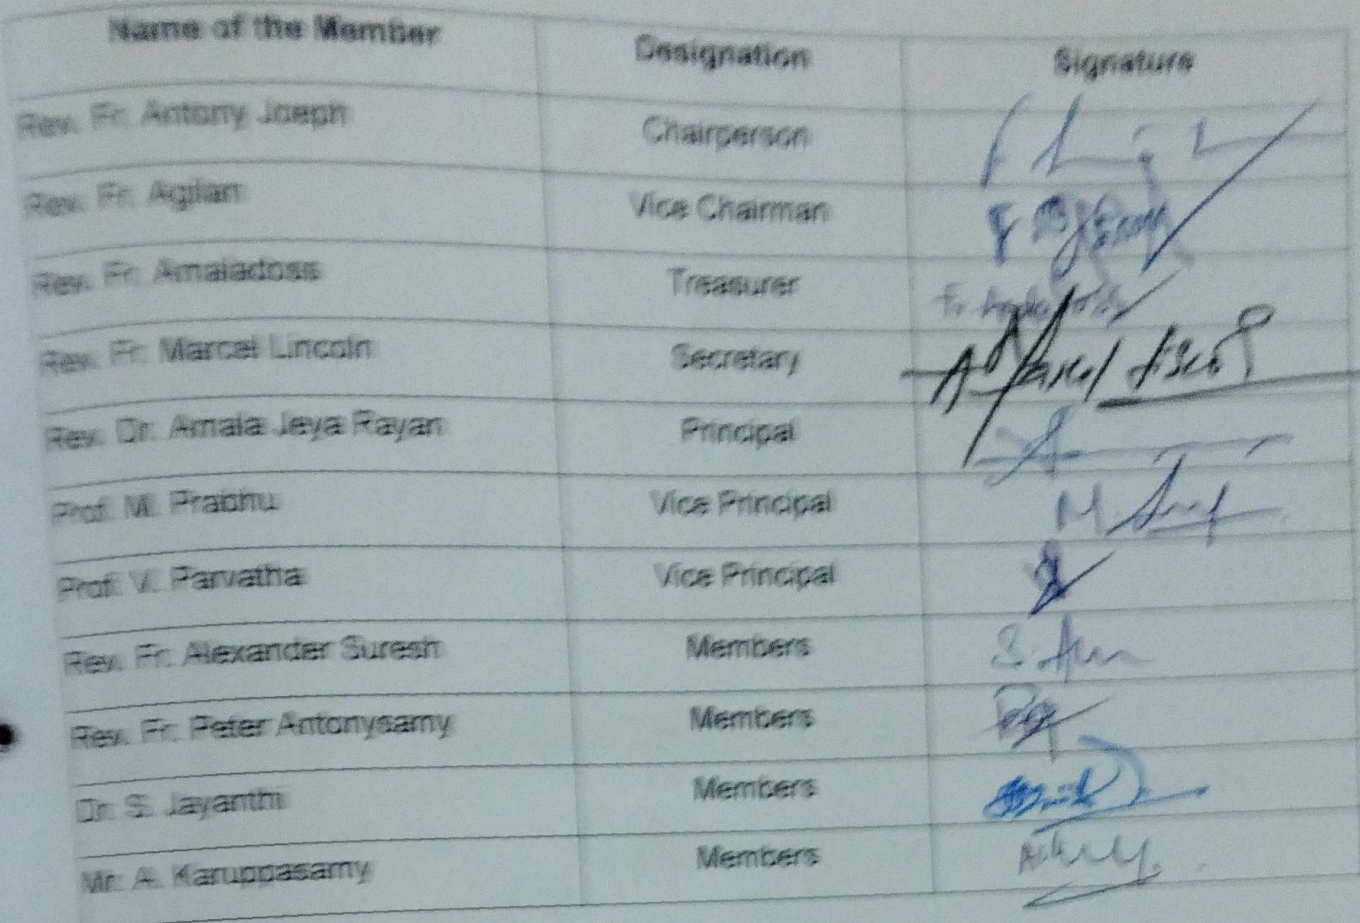 Name of the Member Designation Signature
Rev. Fr. Antony Joeph Chairperson
Rev. Fr. Agilan Vice Chairman
Rev. Fr. Amaladoss Treasurer Fr.
Rev. Fr. Marcel Lincoln Secretary A Marcel
Rev. Dr. Amala Jeya Rayan Principal
Prof. M. Prabhu Vice Principal M.
Prof. V. Parvatha Vice Principal
Rev. Fr. Alexander Suresh Members S.
Rev. Fr. Peter Antonysamy Members
Dr. S. Jayanthi Members
Mr. A. Karuppasamy Members